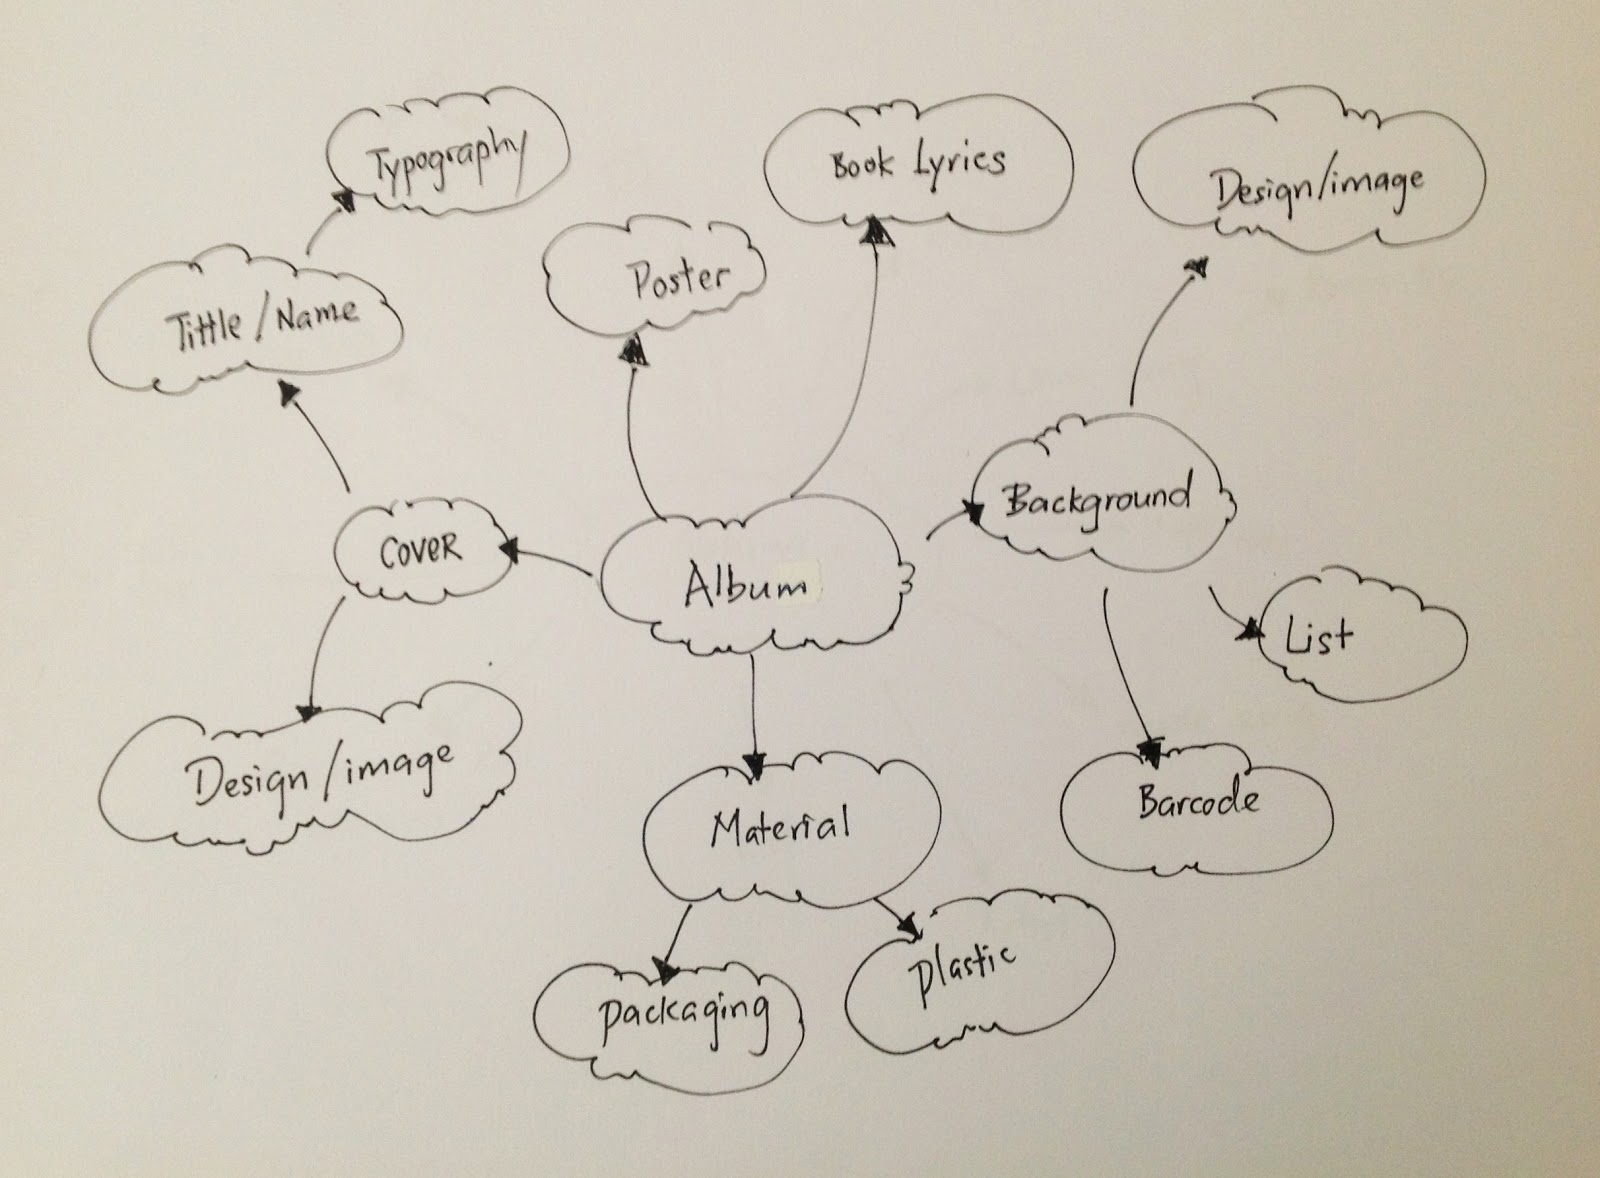 Typography
Book Lyrics
Design/image
Poster
Tittle/Name
Background
COVER
Album
List
Design/image
Material
Barcode
Packaging
Plastic